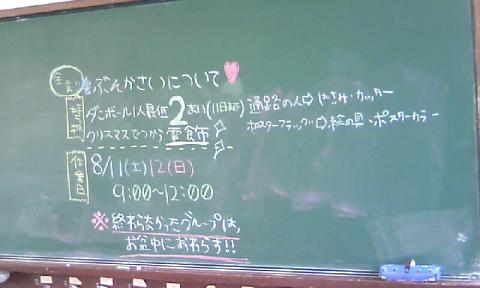 全員 ぶんかさいについて
持物 ダンボール1人最低2まい(11日まで) 通路の人⇨はさみ・カッター
クリスマスでつかう電食飾 ポスターブラック⇨絵の具・ポスターカラー
作業日 8/11(土)12(日)
9:00〜12:00
※終わらなかったグループは、
お盆中におわらす!!